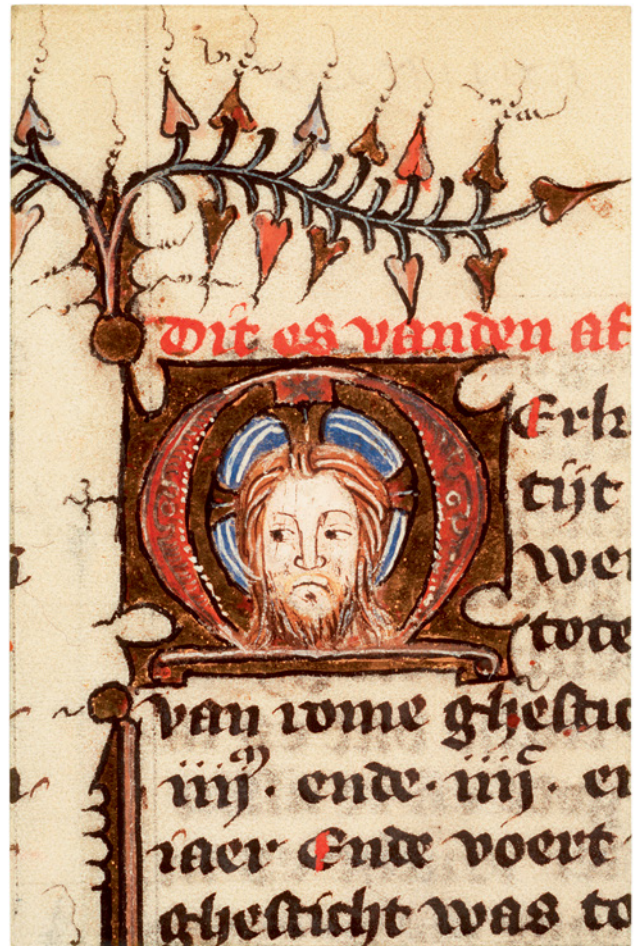 Dit es vanden af
MErk
tijt
wer
tote
van rome ghestic
iiijᵐ. ende. iiijᶜ. en
iaer Ende voert
ghesticht was to